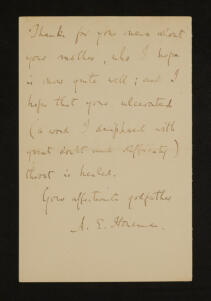 Thanks for your news about
your mother, who I hope
is now quite well; and I
hope that your ulcerated
(a word I deciphered with
great doubt and difficulty)
throat is healed.
Your affectionate godfather
A. E. Housman.